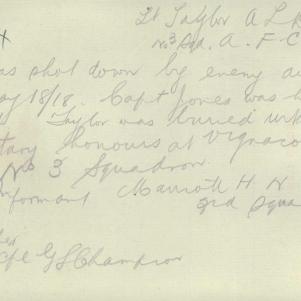 Lt Taylor A L
No 3 Sqd. A. F. C
as shot down by enemy a
ay 18/18. Capt Jones was h
Taylor was buried
tary honours at Vignaco
No 3 Squadron.
nformant Marriott H. H
3rd Squa
Cpl G S Champion